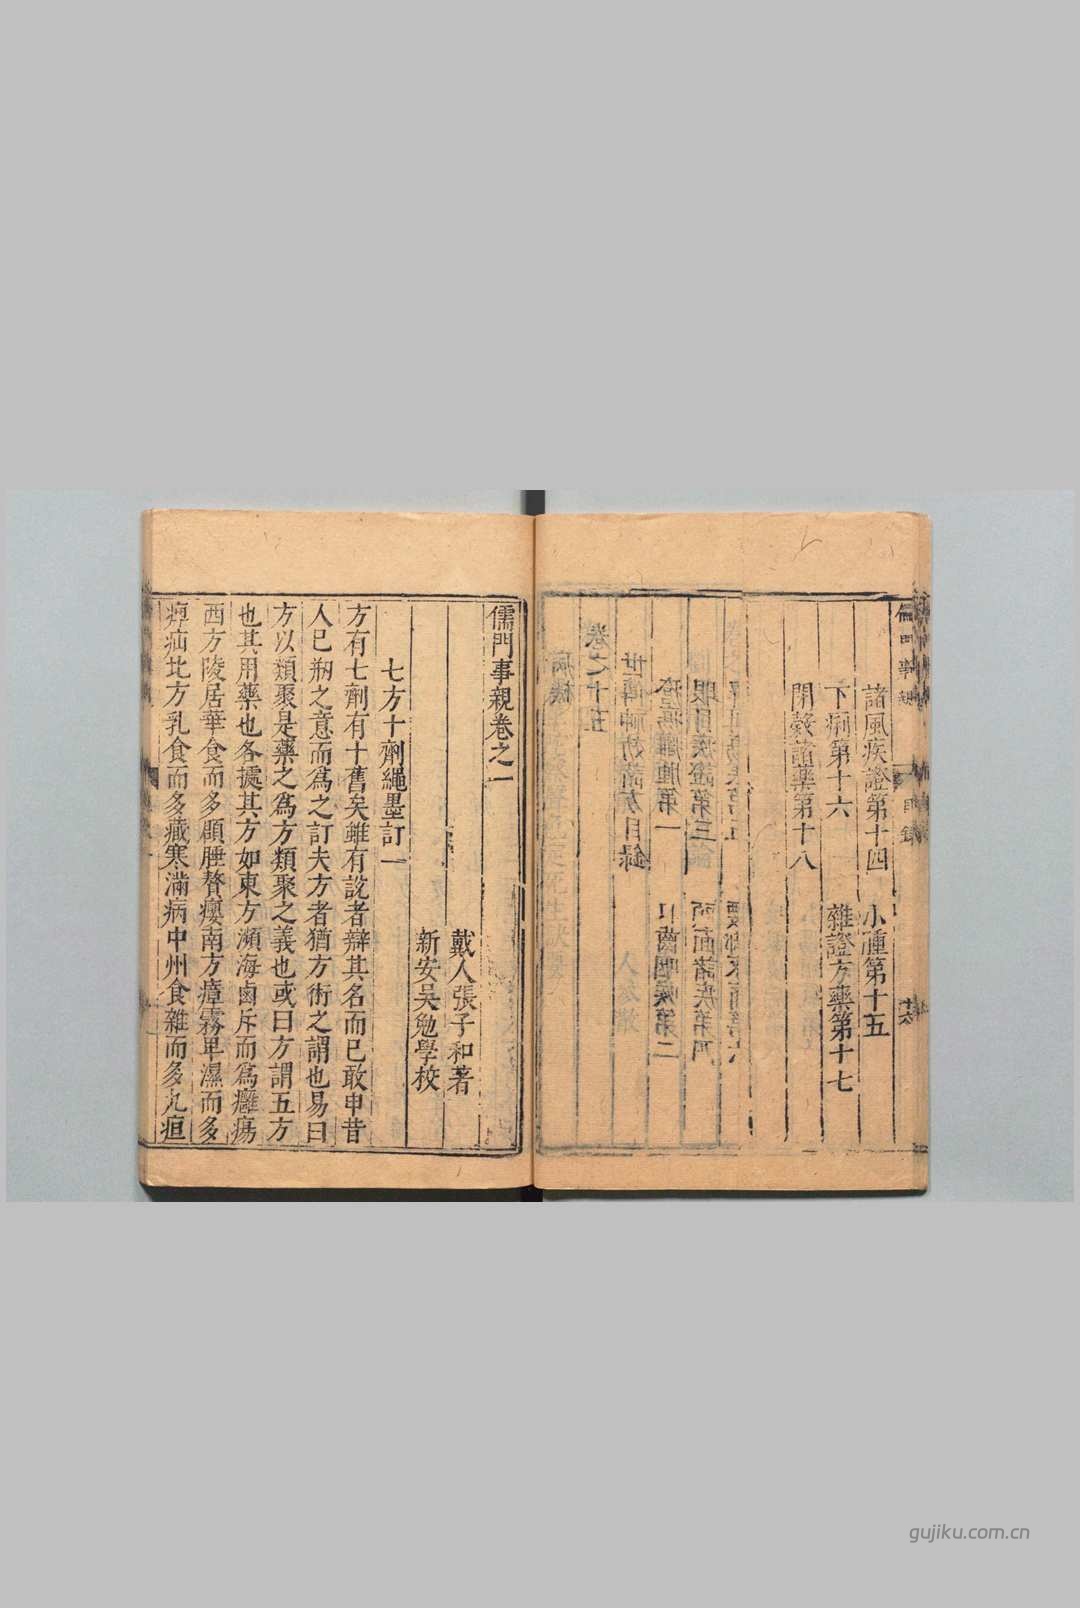 諸風疾證第十四 小腫第十五
下痢第十六 雜證方藥第十七
閉諸藥第十八
目錄
儒門事親卷之一
戴人張子和著
新安吳勉學校
七方十劑繩墨訂一
方有七劑有十舊矣雖有說者辯其名而已敢申昔
人已剏之意而爲之訂夫方者猶方術之謂也易曰
方以類聚是藥之爲方類聚之義也或曰方謂五方
也其用藥也各據其方如東方瀕海鹵斥而爲癰瘍
西方陵居華食而多腄贅癭南方瘴霧卑濕而多
痺疝北方乳食而多藏寒滿病中州食雜而多九疸
gujiku.com.cn